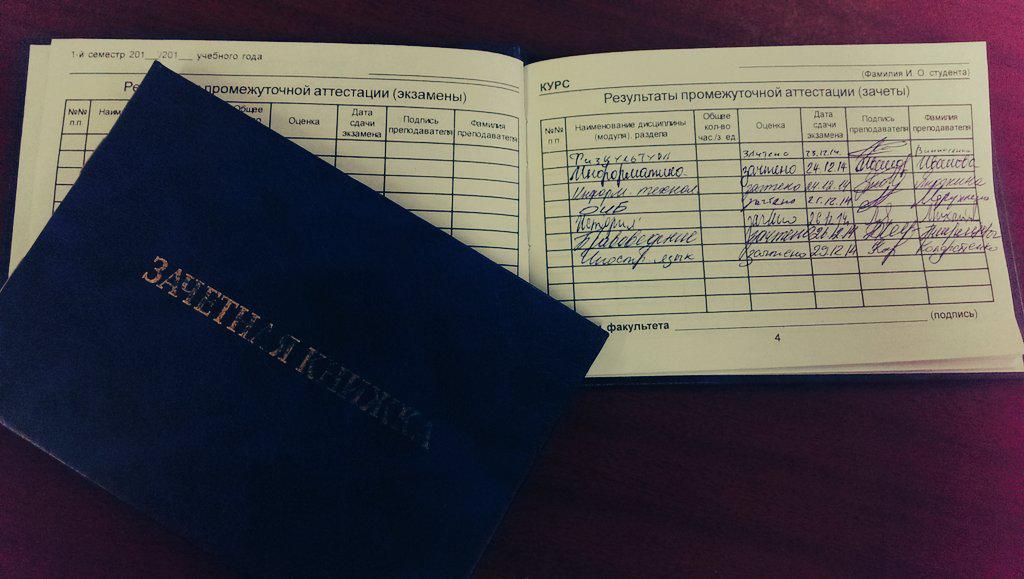 1-й семестр 201__/201__ учебного года
промежуточной аттестации (экзамены)
№№ п.п. Общее Оценка Дата сдачи экзамена Подпись преподавателя Фамилия преподавателя
ЗАЧЕТНАЯ КНИЖКА
КУРС
(Фамилия И. О. студента)
Результаты промежуточной аттестации (зачеты)
№№ п.п. Наименование дисциплины (модуля), раздела Общее кол-во час./з. ед. Оценка Дата сдачи экзамена Подпись преподавателя Фамилия преподавателя
Физкультура Зачтено 23.12.14
Информатика зачтено 24.12.14 Иванова
Информ. технол зачтено 24.12.14
зачтено
История зачтено
Правоведение зачтено
Иностр. язык зачтено 29.12.14 Кондратенко
факультета (подпись)
4